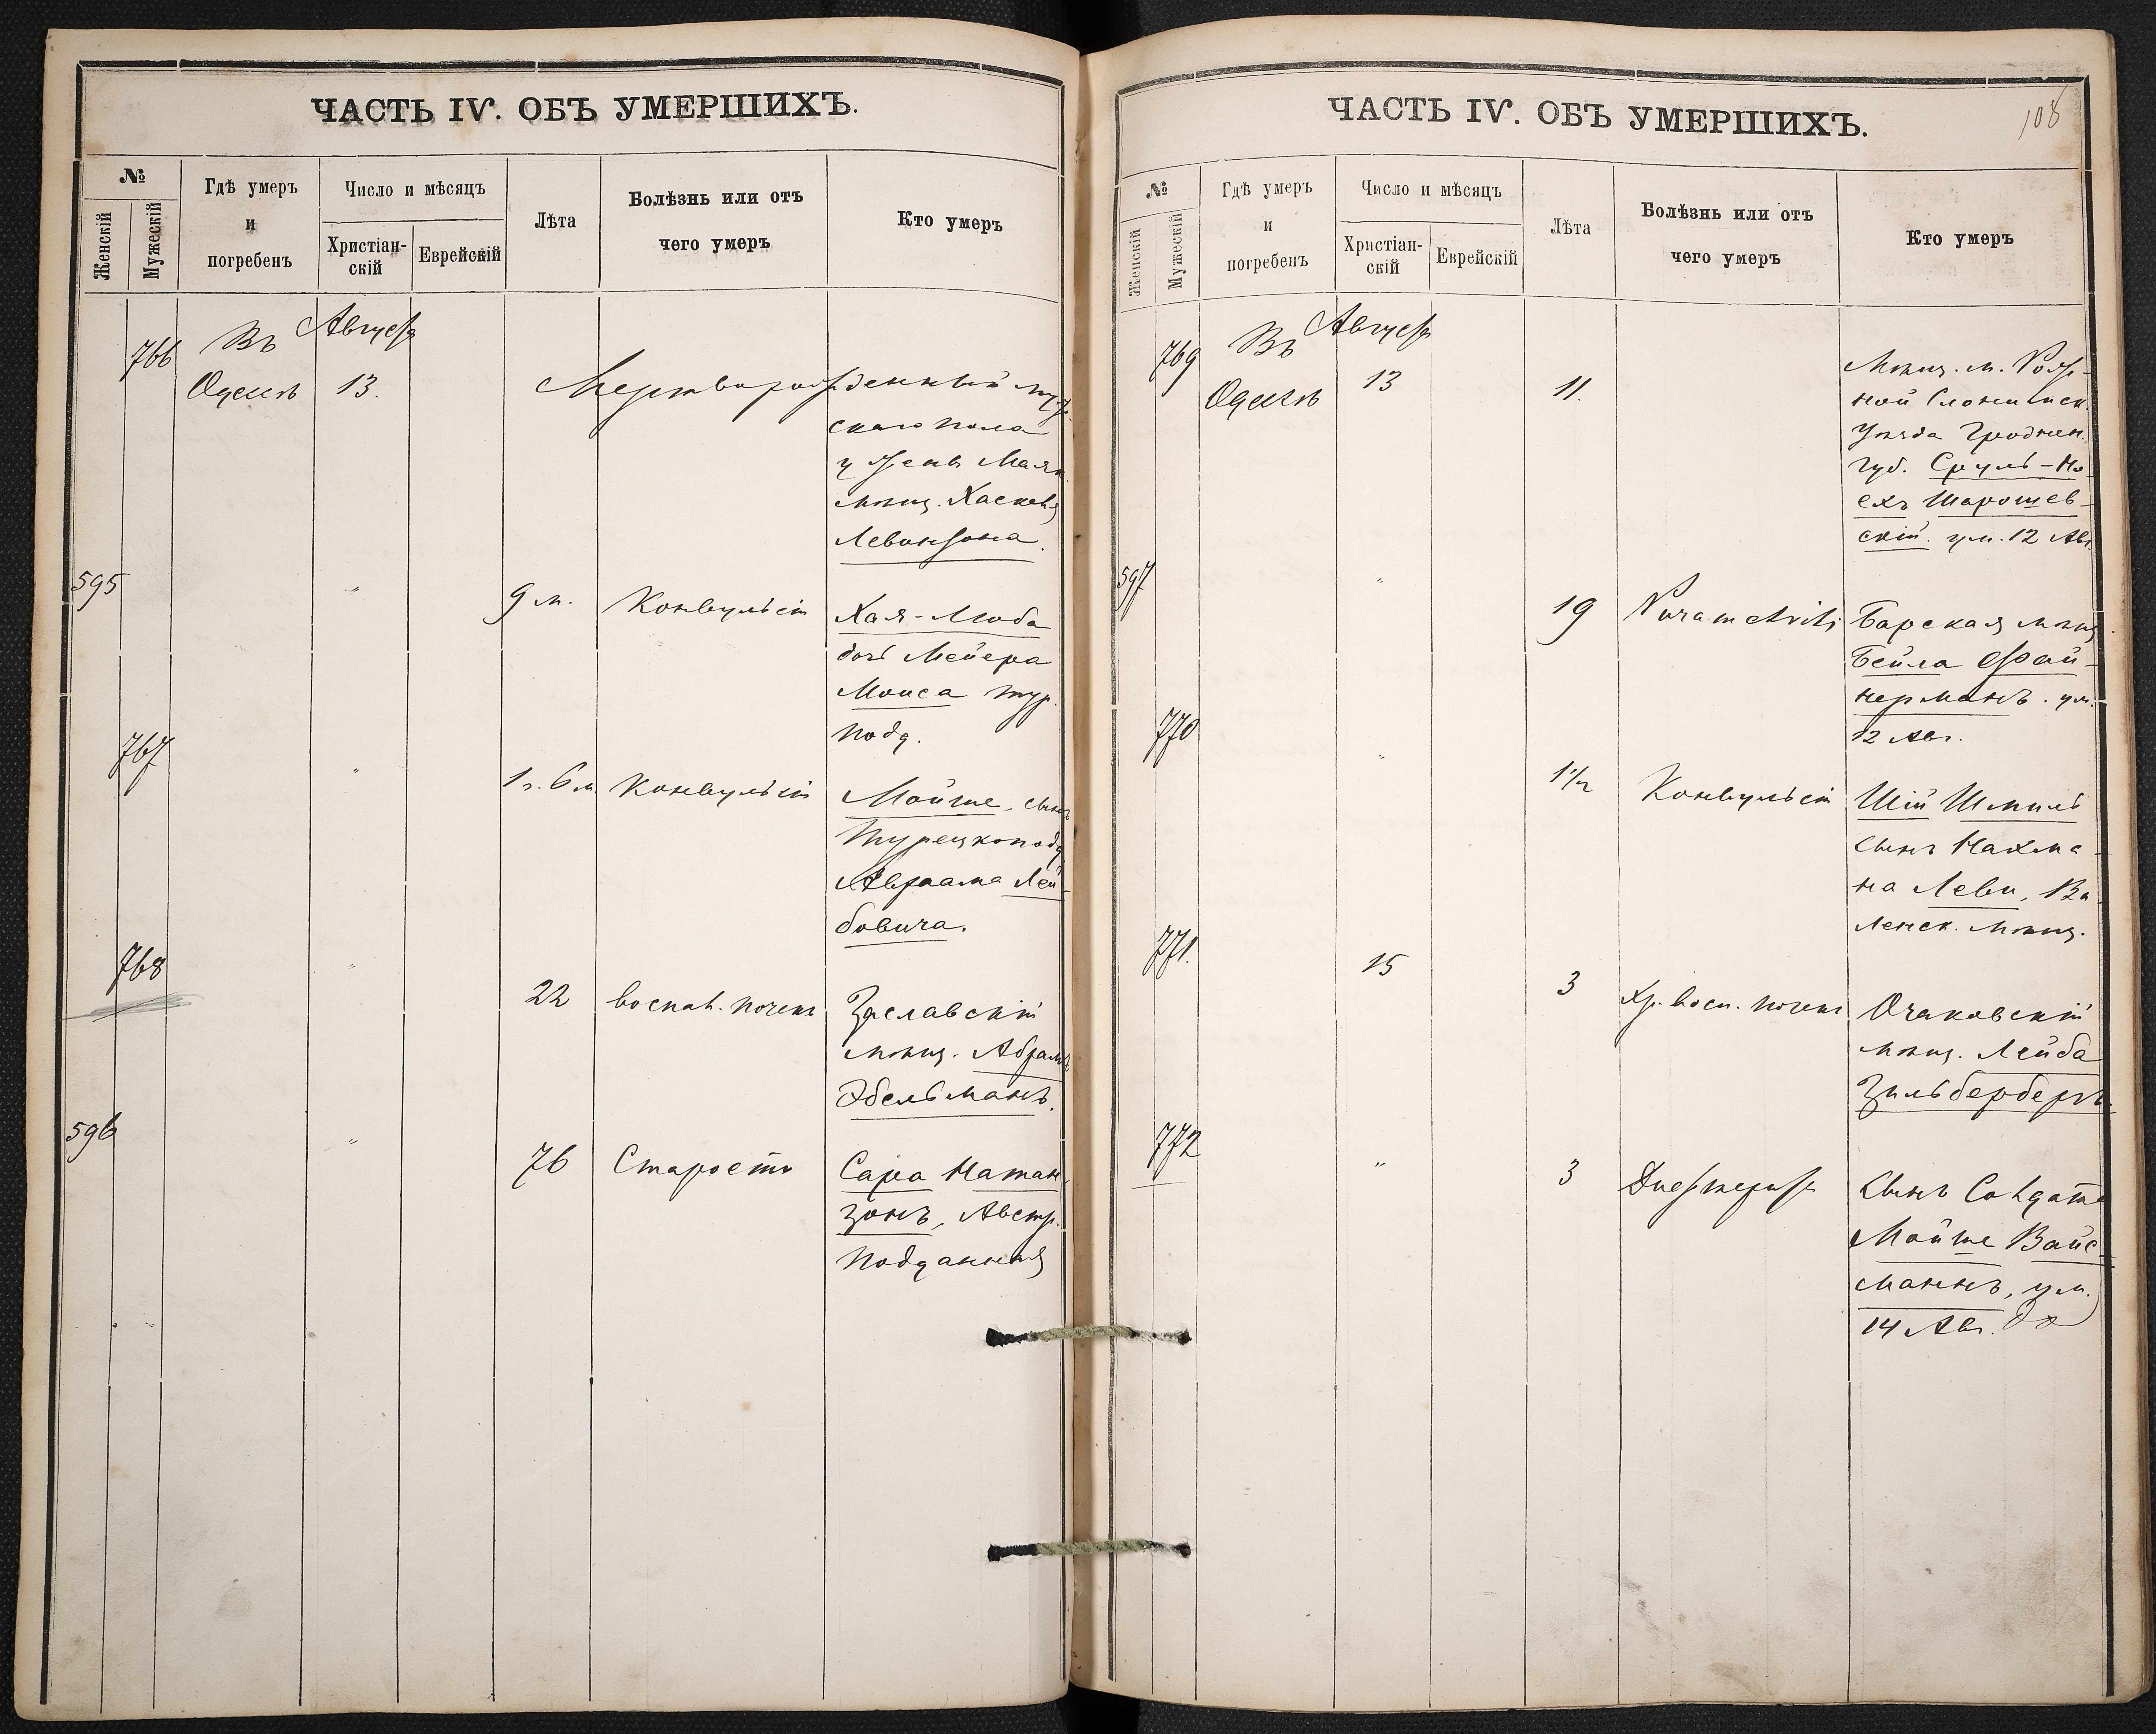 ЧАСТЬ IV. ОБЪ УМЕРШИХЪ.
№
Женскій
Мужескій
Гдѣ умеръ
и
погребенъ
Число и мѣсяцъ
Христіан-
скій
Еврейскій
Лѣта
Болѣзнь или отъ
чего умеръ
Кто умеръ
766
Въ Августа
Одессѣ 13.
Мертворожденный муж.
скаго пола
у жены Маяк.
мѣщ. Хаскеля
Левинзона.
595 " 9 м. Конвульсіи
Хая-Люба
дочь Мейера
Моиса тур.
подд.
767 " 1 г. 6 м. Конвульсіи
Мойше, сынъ
Турецкоподд.
Авраама Лей-
бовича.
768 " 22 воспал. почекъ
Заславскій
мѣщ. Абрамъ
Эдельманъ.
596 " 76 Старость
Сара Натан-
зонъ, Австр.
подданная
ЧАСТЬ IV. ОБЪ УМЕРШИХЪ.
108
№
Женскій
Мужескій
Гдѣ умеръ
и
погребенъ
Число и мѣсяцъ
Христіан-
скій
Еврейскій
Лѣта
Болѣзнь или отъ
чего умеръ
Кто умеръ
769
Въ Августа
Одессѣ 13 11.
Мѣщ. м.
ной Слонимск.
Уѣзда Гроднен.
губ. Сруль-Но-
ехъ Шарошев-
скій. ум. 12 Авг.
597 " 19
Барская мѣщ.
Бейла Фай-
нерманъ. ум.
12 Авг.
770 " 1 1/2 Конвульсіи
Шмиль
сынъ Нахма-
на Леви, Ви-
ленск. мѣщ.
771. 15 3 Хр. восп. почекъ
Очаковскій
мѣщ. Лейба
Зильберберъ.
772 " 3 Дифтеритъ
Сынъ Солдата
Мойше Вайс-
маннъ, ум.
14 Авг.